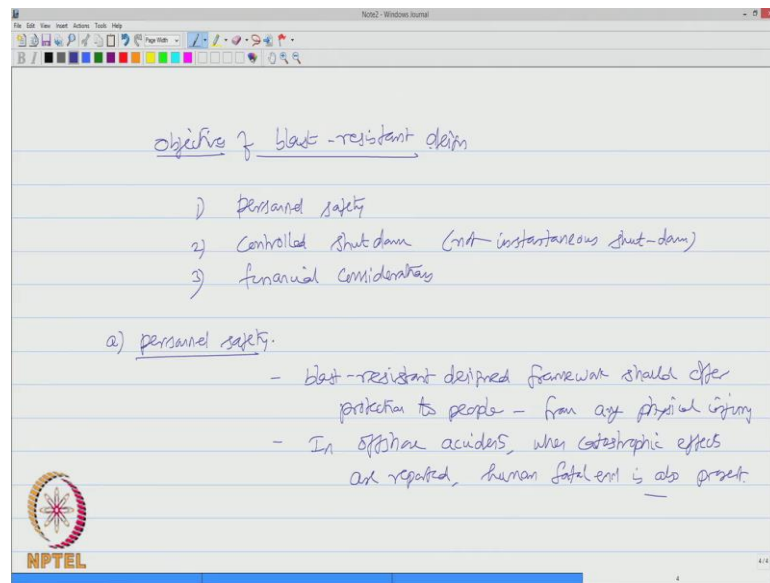 Note2 - Windows Journal
File Edit View Insert Actions Tools Help
Page Width
B I
objective of blast-resistant design
1) personnel safety
2) Controlled shutdown (not-instantaneous shut-down)
3) financial considerations
a) personnel safety.
- blast-resistant designed framework should offer
protection to people - from any physical injury
- In offshore accidents, when catastrophic effects
are reported, human fatal end is also present.
NPTEL
4/4
4